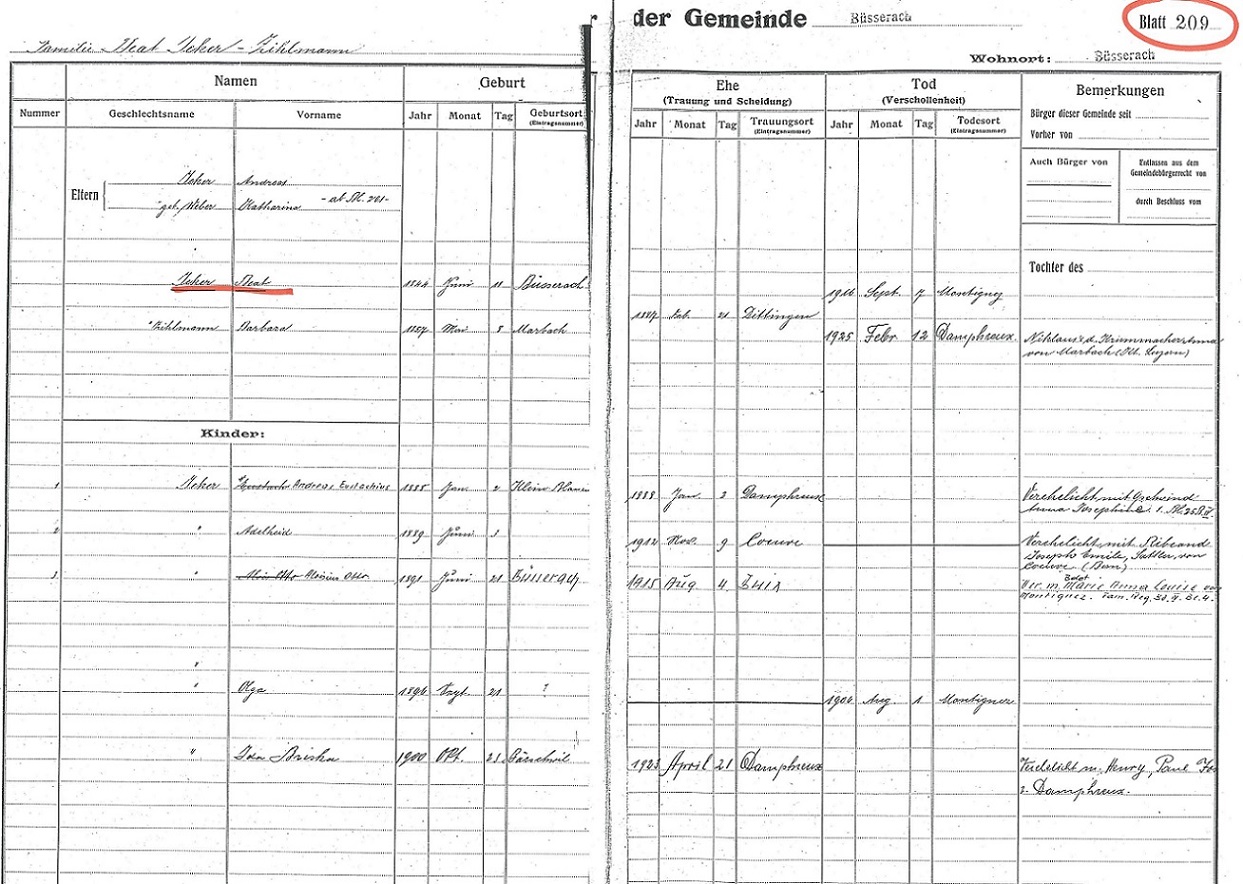 der Gemeinde Büsserach
Blatt 209
Familie Beat Jeker - Zihlmann
Wohnort: Büsserach
Namen Geburt
Ehe Tod Bemerkungen
(Trauung und Scheidung) (Verschollenheit)
Nummer Geschlechtsname Vorname Jahr Monat Tag Geburtsort
(Eintragsnummer)
Jahr Monat Tag Trauungsort Jahr Monat Tag Todesort
(Eintragsnummer) (Eintragsnummer)
Bürger dieser Gemeinde seit
Vorher von
Auch Bürger von Entlassen aus dem
Gemeindebürgerrecht von
durch Beschluss vom
Eltern
Jeker Andreas
geb. Weber Katharina - ab Bl. 201 -
Tochter des
Jeker Beat 1844 Juni 11 Büsserach
Sept. 7 Montignez
Zihlmann Barbara 1857 Mai 8 Marbach
1887 21 Dittingen
1925 Febr. 12 Damphreux.
Niklaus u. d. Krummenacher Anna
von Marbach (Kt. Luzern)
Kinder:
1 Jeker Andreas Eustachius 1888 Jan. 2 Klein
Jan. 3 Damphreux
Verehelicht mit Gschwind
Anna Josephine
2 " Adelheid 1889 Juni 3
1912 Nov. 9 Coeuve
Verehelicht mit Ribeaud
Joseph Emile, Sattler, von
Coeuve (Bern)
3 " Aloisius Otto 1891 Juni 21 Büsserach
1915 Aug 4
Ver. m. Marie Anna Louise von
Montignez. Fam. Reg.
"
" Olga 21 ?
Aug. 1 Montignez
" Ida 1900 Okt. 21 Bärschwil
1923 April 21 Damphreux
Verehelicht m. Henry, Paul
v. Damphreux.